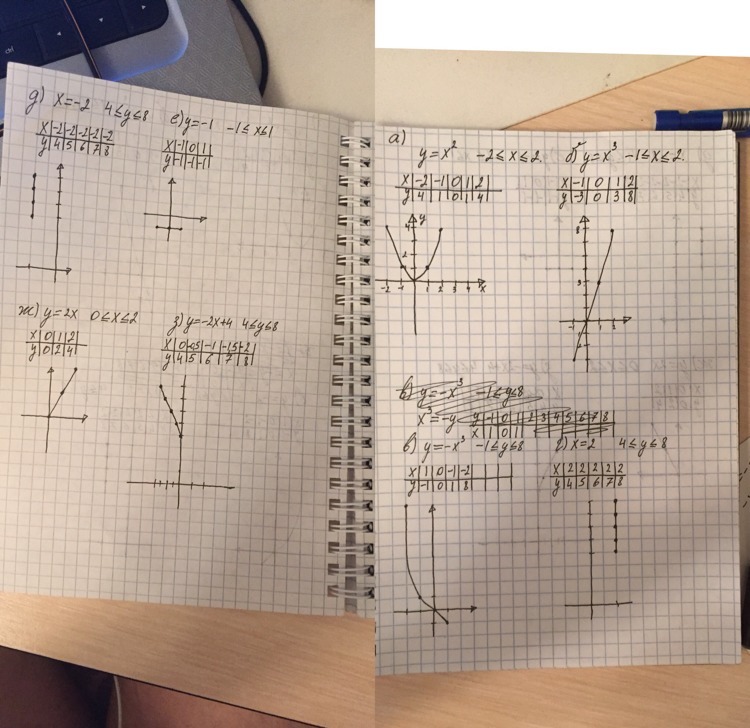 д) x=-2 4≤y≤8
x|-2|-2|-2|-2|-2
y|4|5|6|7|8
е) y=-1 -1≤x≤1
x|-1|0|1|
y|-1|-1|-1|
ж) y=2x 0≤x≤2
x|0|1|2|
y|0|2|4|
з) y=-2x+4 4≤y≤8
x|0|-0,5|-1|-1,5|-2|
y|4|5|6|7|8|
а)
y=x² -2≤x≤2
x|-2|-1|0|1|2|
y|4|1|0|1|4|
4 y
2
-2 -1 1 2 3 4 5 x
б) y=x³ -1≤x≤2.
x|-1|0|1|2|
y|-3|0|3|8|
8
3
-1 1
в) y=-x³ -1≤y≤8
x³=-y
y|-1|0|1|2|3|4|5|6|7|8
x|1|0|1
в) y=-x³ -1≤y≤8
x|1|0|-1|-2|
y|-1|0|1|8|
г) x=2 4≤y≤8
x|2|2|2|2|2
y|4|5|6|7|8